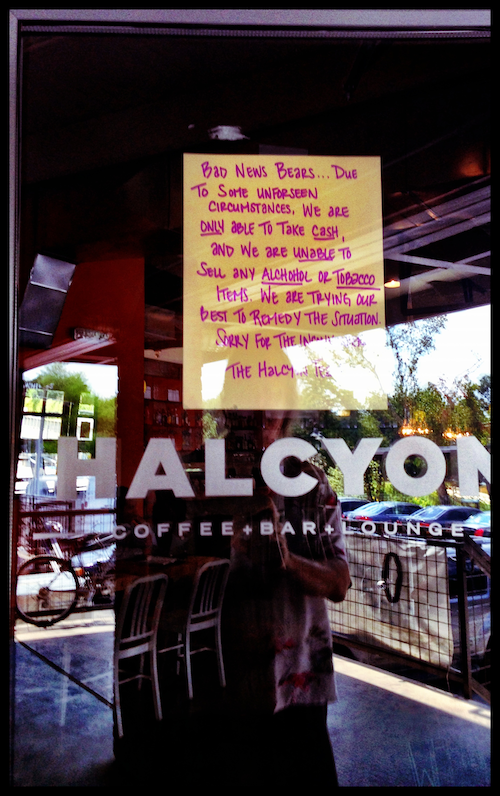 BAD NEWS BEARS... DUE
TO SOME UNFORSEEN
CIRCUMSTANCES, WE ARE
ONLY ABLE TO TAKE CASH,
AND WE ARE UNABLE TO
SELL ANY ALCHOHOL OR TOBACCO
ITEMS. WE ARE TRYING OUR
BEST TO REMEDY THE SITUATION.
SORRY FOR THE
THE
HALCYON
COFFEE+BAR+LOUNGE